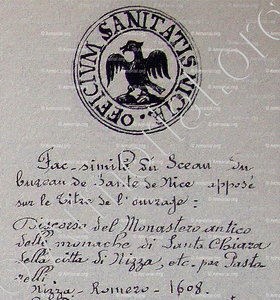 OFFICIUM SANITATIS NICIÆ.
Fac-simile du Sceau du
bureau de Santé de Nice apposé
sur le titre de l'ouvrage:
Discorso del Monastero antico
delle monache di Santa Chiara
della citta di Nizza, etc. par Pasto
relli
Nizza - Romero - 1608.